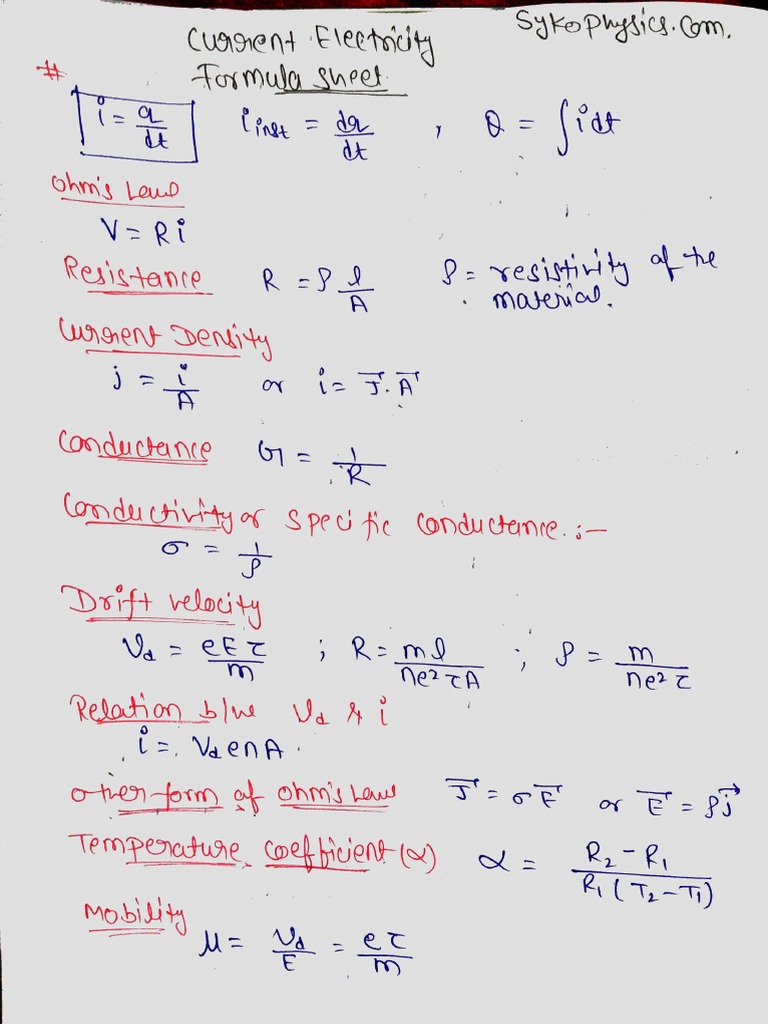 Current Electricity Sykophysics.com.
# Formula sheet
i = q/dt i inst = dq/dt , Q = ∫idt
Ohm's Law
V = Ri
Resistance R = ρ l/A ρ = resistivity of the
material.
Current Density
j = i/A or i = J⃗.A⃗
Conductance G = 1/R
Conductivity or specific conductance :-
σ = 1/ρ
Drift velocity
Vd = eEτ/m ; R = ml/ne²τA ; ρ = m/ne²τ
Relation b/w Vd & i
i = VdenA.
other form of ohm's Law J⃗ = σE⃗ or E⃗ = ρj⃗
Temperature coefficient (α) α = R₂-R₁/R₁(T₂-T₁)
Mobility
μ = Vd/E = eτ/m